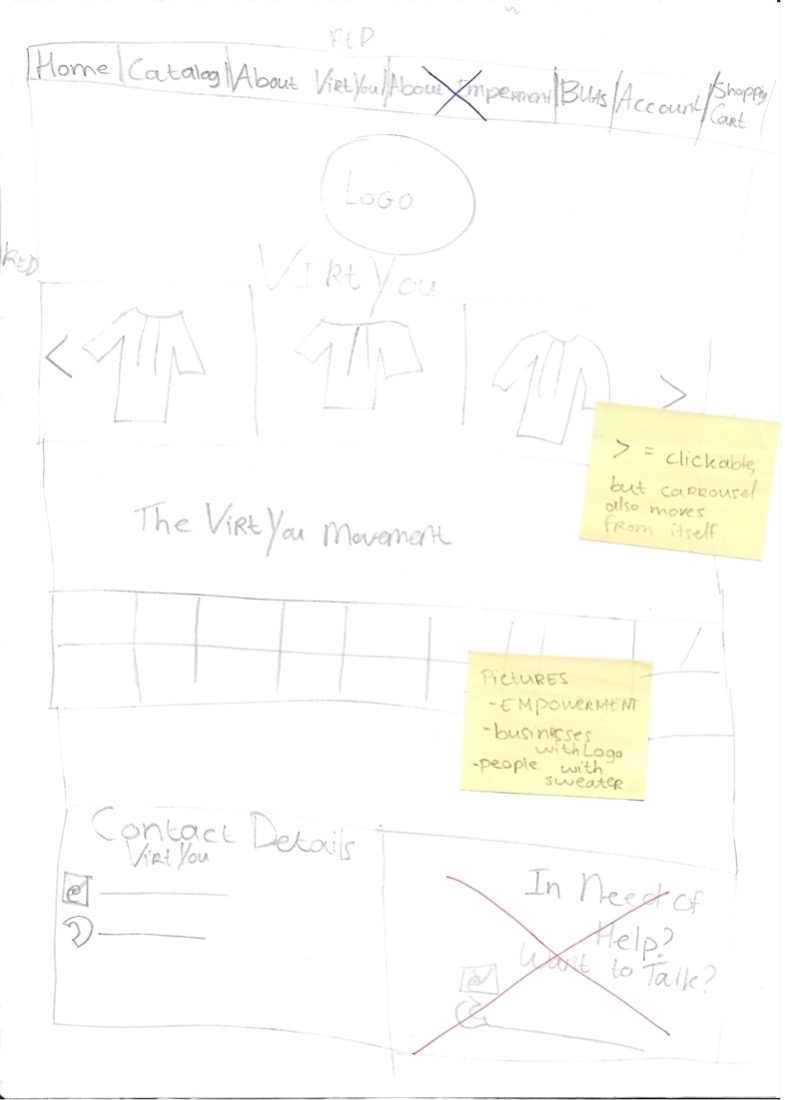 RED
Home
Catalog
About VirtYou
About
Account
Shopping
Cart
LOGO
RED
VirtYou
<
>
> = clickable,
but carrousel
also moves
from itself.
The VirtYou Movement
Pictures
- EMPOWERMENT
- businesses
with Logo
- people with
sweater
Contact Details
VirtYou
@
In Need of
Help?
Want to Talk?
@